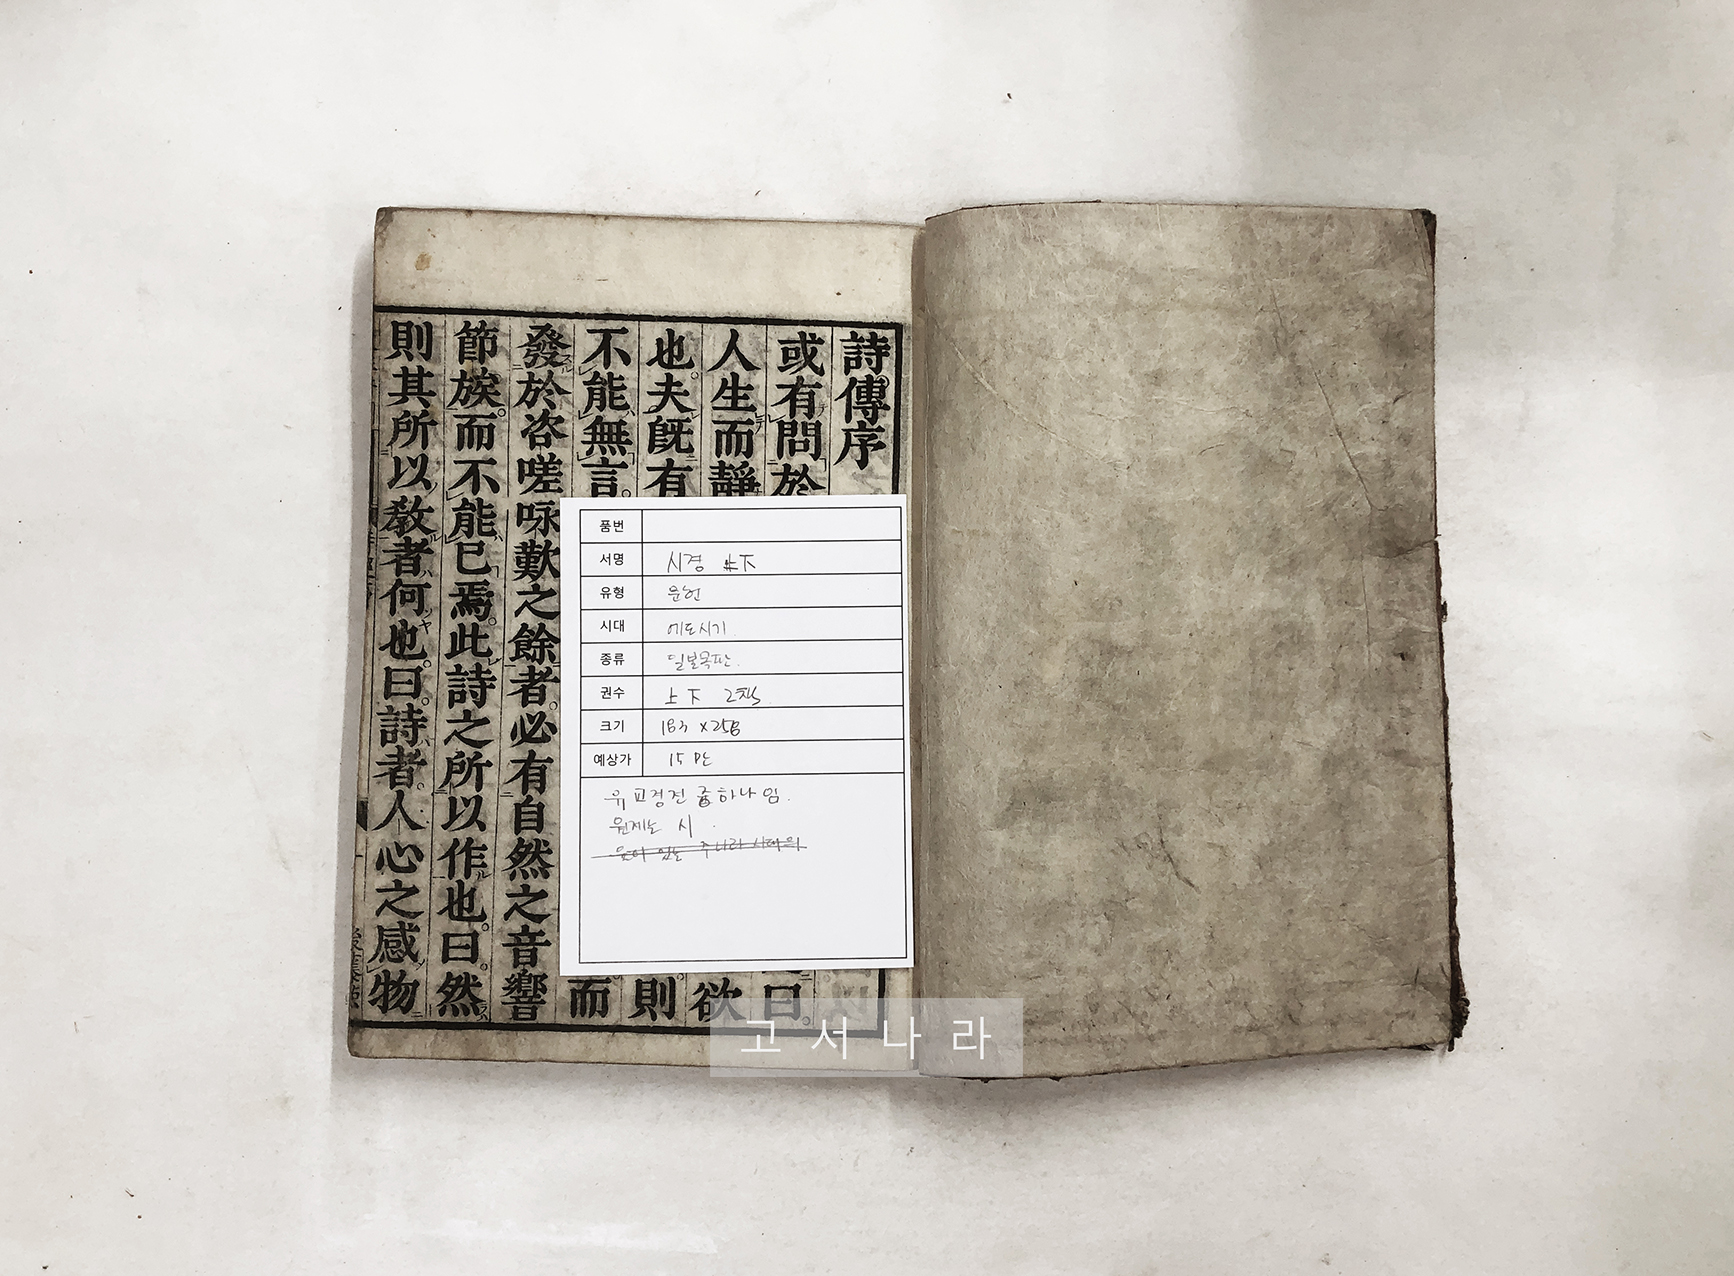 詩傳序
或有問於
曰
人生而靜
欲
也夫旣有
則
不能無言
而
發於咨嗟咏歎之餘者必有自然之音響
節族而不能已焉此詩之所以作也曰然
則其所以敎者何也曰詩者人心之感物
품번
서명 시경 上下
유형 문헌
시대 에도시기
종류 일본목판.
권수 上下 2책
크기 183 x 258
예상가 15만
유교경전 중 하나임.
원제는 시.
고서나라